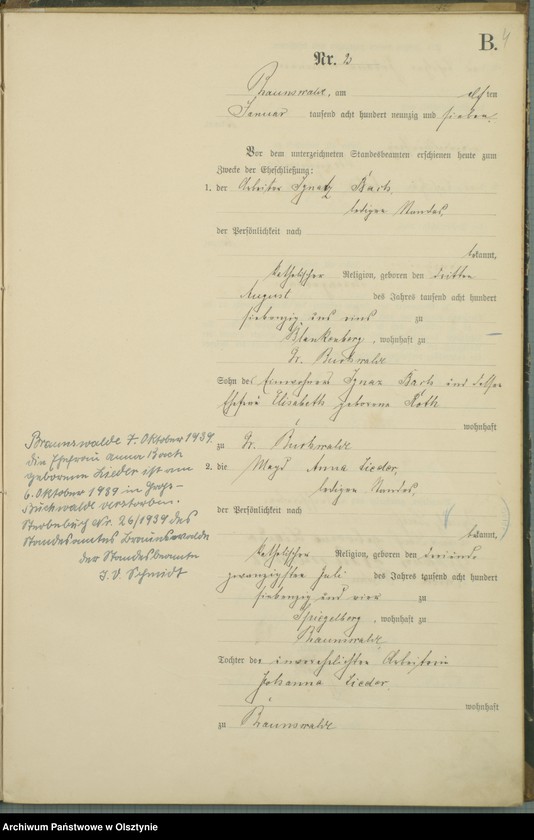 B. 4
Nr. 2
Braunswalde, am elften
Januar tausend acht hundert neunzig und sieben.
Vor dem unterzeichneten Standesbeamten erschienen heute zum
Zwecke der Eheschließung:
1. der Arbeiter Ignatz Barch,
ledigen Standes,
der Persönlichkeit nach
bekannt,
katholischer Religion, geboren den dritten
August des Jahres tausend acht hundert
siebenzig und eins zu
Blankenberg, wohnhaft zu
Gr. Buchwalde
Sohn des Einwohners Ignaz Barch und dessen
Ehefrau Elisabeth geborene Roth
wohnhaft
zu Gr. Buchwalde
2. die Magd Anna Lieder,
ledigen Standes,
der Persönlichkeit nach
bekannt,
katholischer Religion, geboren den drei und
zwanzigsten Juli des Jahres tausend acht hundert
siebenzig und vier zu
Spiegelberg, wohnhaft zu
Braunswalde
Tochter der unverehelichten Arbeiterin
Johanna Lieder
wohnhaft
zu Braunswalde
Braunswalde 7. Oktober 1939.
Die Ehefrau Anna Barch
geborene Lieder ist am
6. Oktober 1939 in Groß-
Buchwalde verstorben.
Sterbebuch Nr. 26/1939 des
Standesamtes Braunswalde
der Standesbeamte
I. V. Schmidt
Archiwum Państwowe w Olsztynie